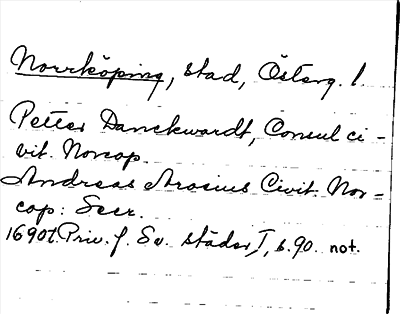 Norrköping, stad, Österg. l.
Petter Danckwardt, Consul ci-
vit. Norcop.
Andreas Arosius Civit. Nor=
cop: Secr.
1690t. Priv. f. Sv. städer I, s. 90. not.